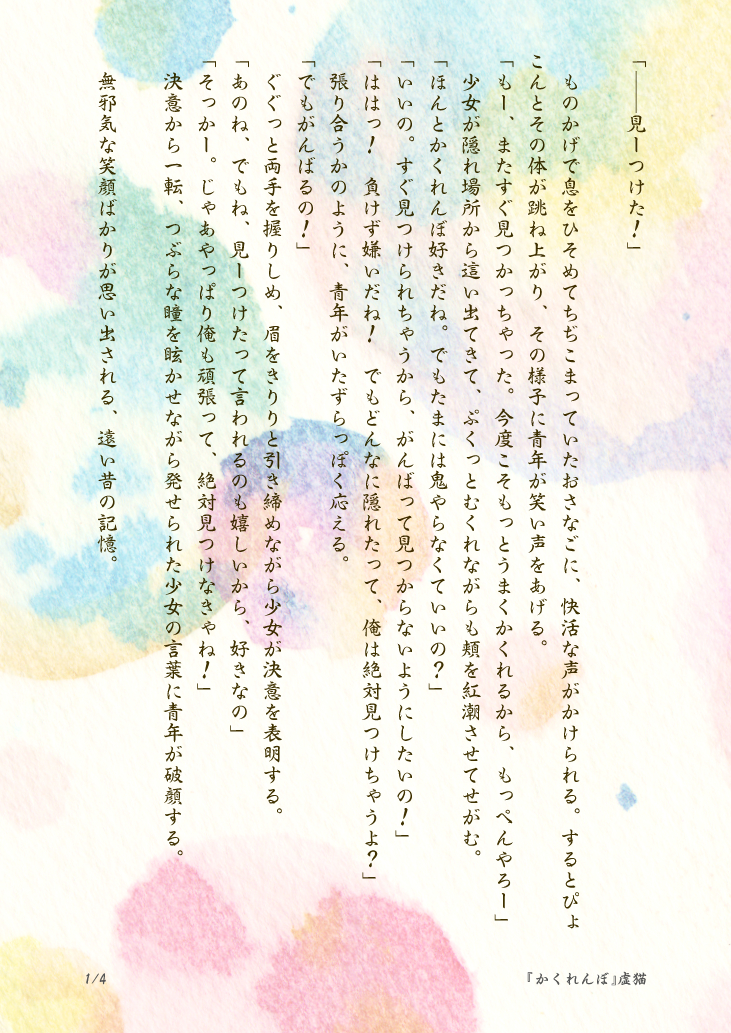 「――見ーつけた！」
ものかげで息をひそめてちぢこまっていたおさなごに、快活な声がかけられる。するとぴょ
こんとその体が跳ね上がり、その様子に青年が笑い声をあげる。
「もー、またすぐ見つかっちゃった。今度こそもっとうまくかくれるから、もっぺんやろー」
少女が隠れ場所から這い出てきて、ぷくっとむくれながらも頬を紅潮させてせがむ。
「ほんとかくれんぼ好きだね。でもたまには鬼やらなくていいの？」
「いいの。すぐ見つけられちゃうから、がんばって見つからないようにしたいの！」
「ははっ！　負けず嫌いだね！　でもどんなに隠れたって、俺は絶対見つけちゃうよ？」
張り合うかのように、青年がいたずらっぽく応える。
「でもがんばるの！」
ぐぐっと両手を握りしめ、眉をきりりと引き締めながら少女が決意を表明する。
「あのね、でもね、見ーつけたって言われるのも嬉しいから、好きなの」
「そっかー。じゃあやっぱり俺も頑張って、絶対見つけなきゃね！」
決意から一転、つぶらな瞳を眩かせながら発せられた少女の言葉に青年が破顔する。
無邪気な笑顔ばかりが思い出される、遠い昔の記憶。
『かくれんぼ』虚猫
1/4